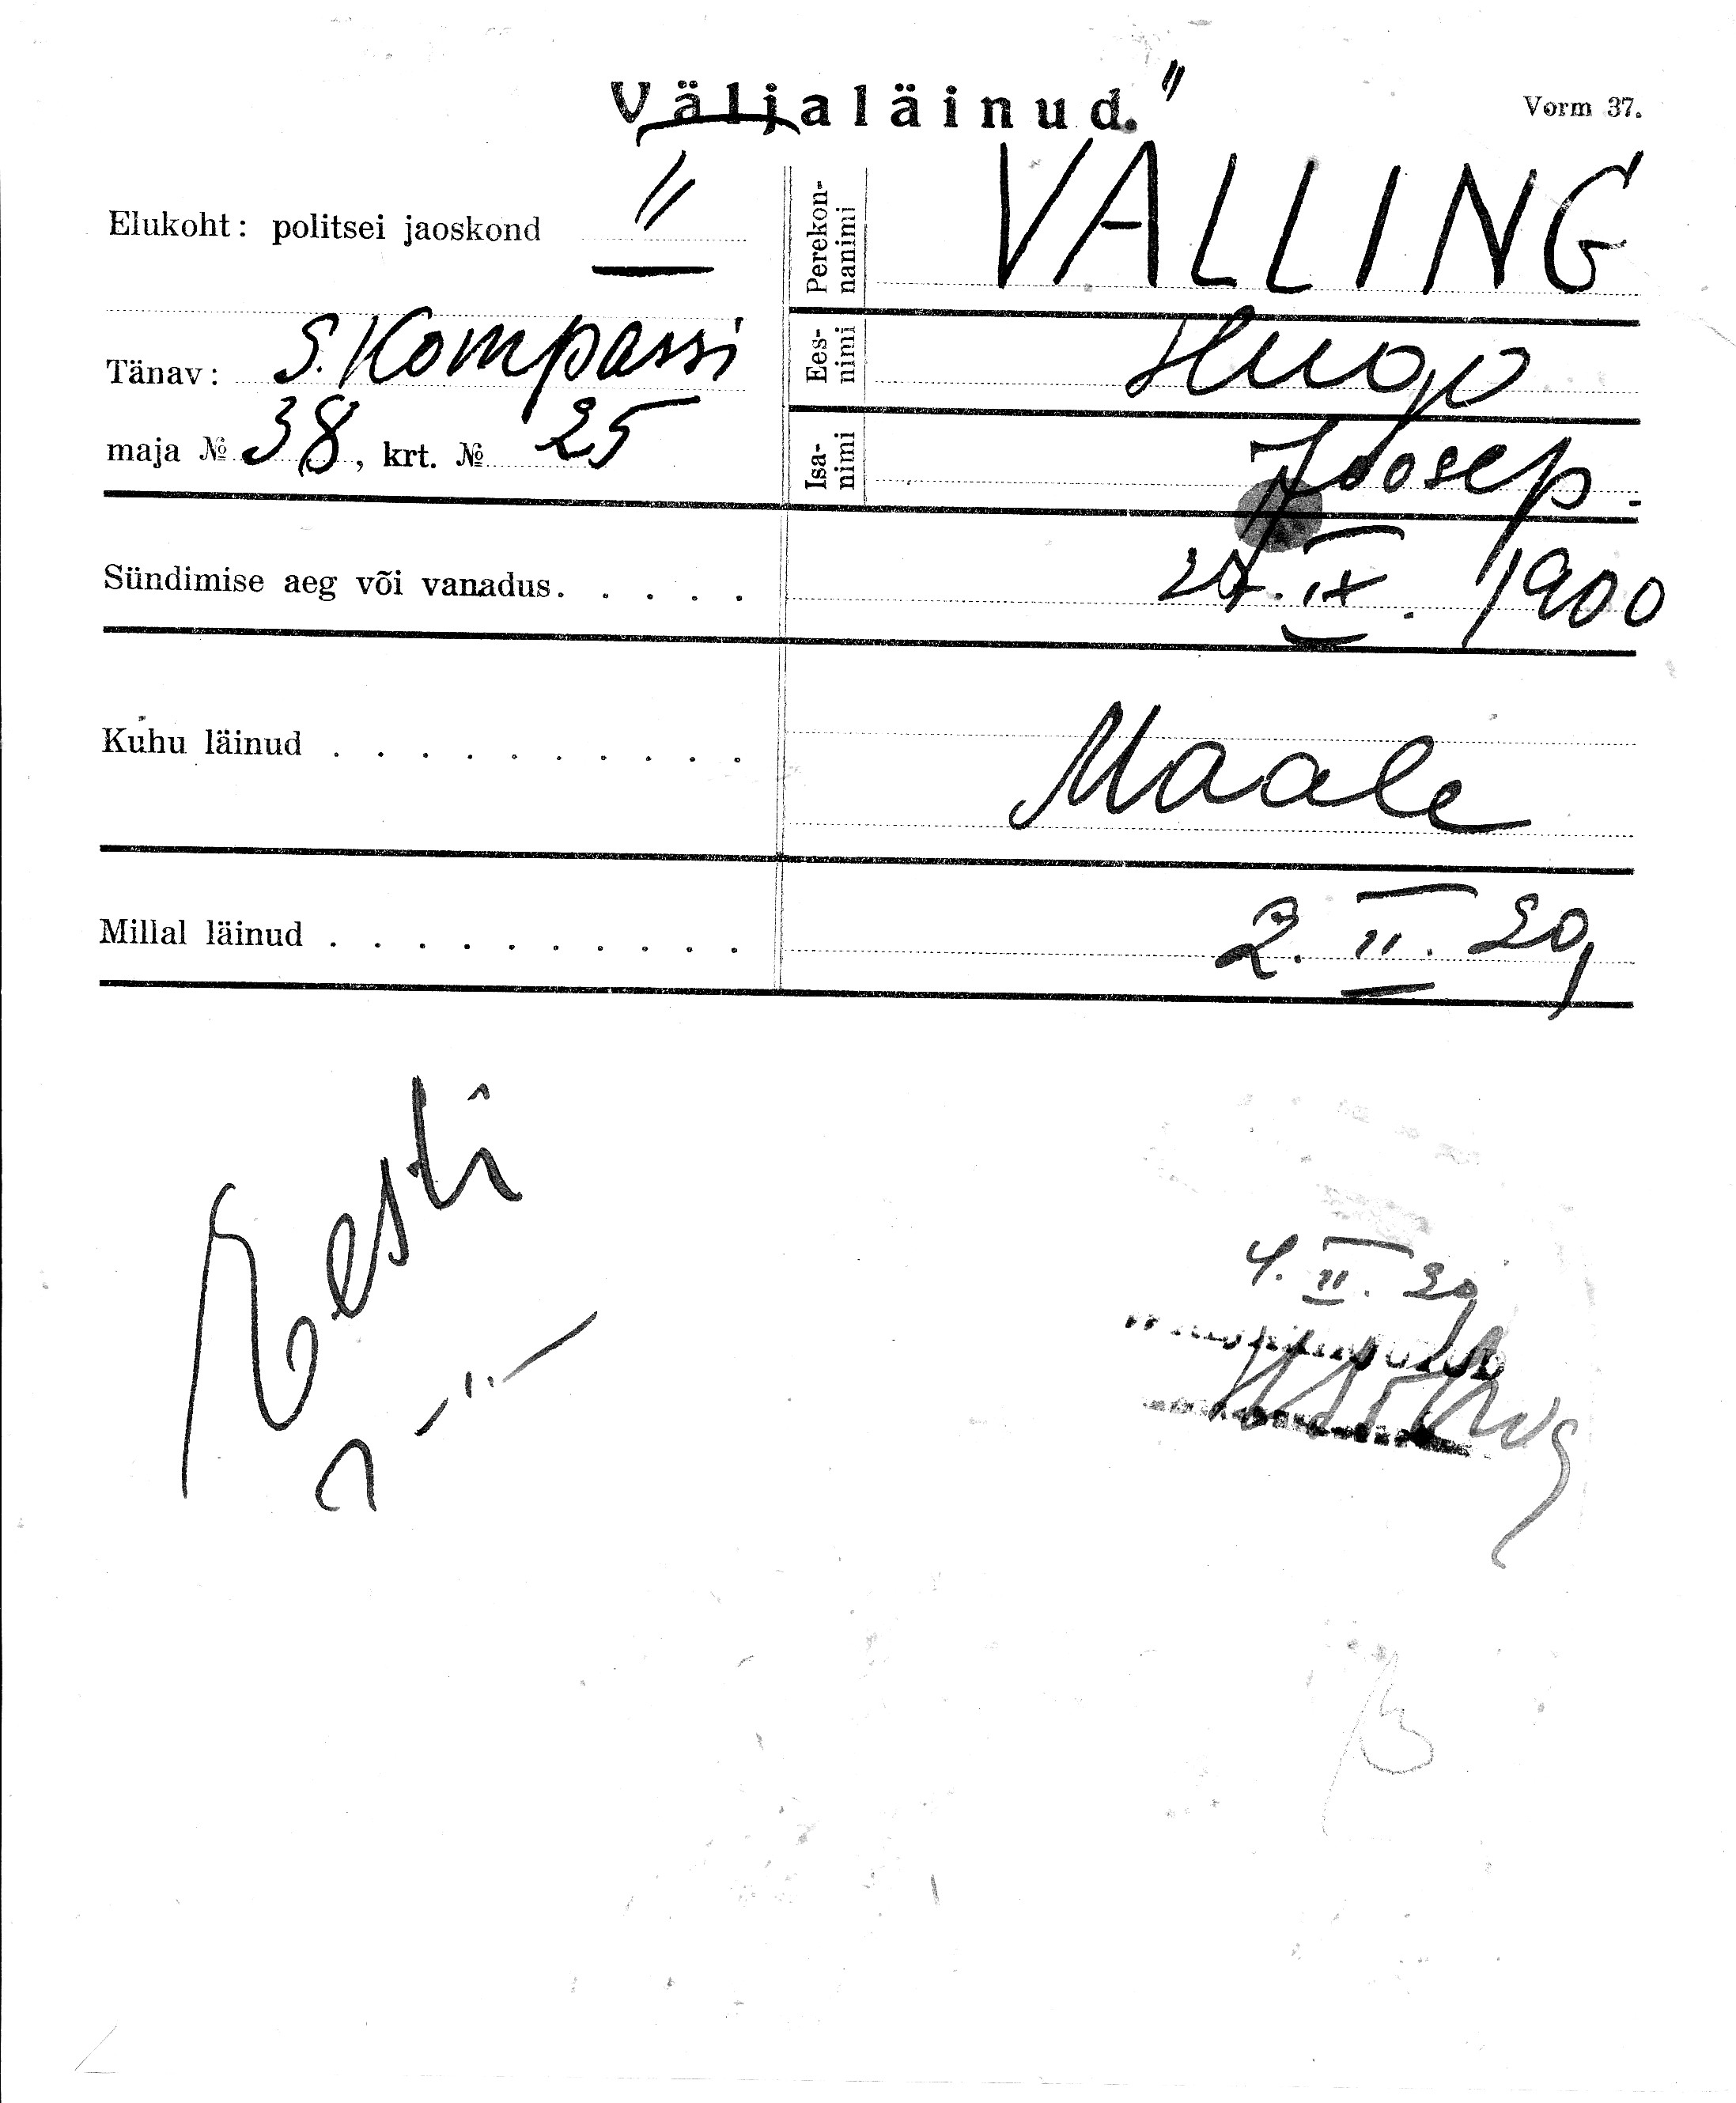 Väljaläinud."
Vorm 37.
Elukoht: politsei jaoskond II
Tänav: S. Kompassi
maja № 38, krt. № 25
Perekonnanimi VALLING
Eesnimi Hugo
Isanimi Joosep.
Sündimise aeg või vanadus. . . . . 27. IX. 1900
Kuhu läinud . . . . . . . . . . Maale
Millal läinud . . . . . . . . . . 2. II. 20,
Eesti
4. II. 20